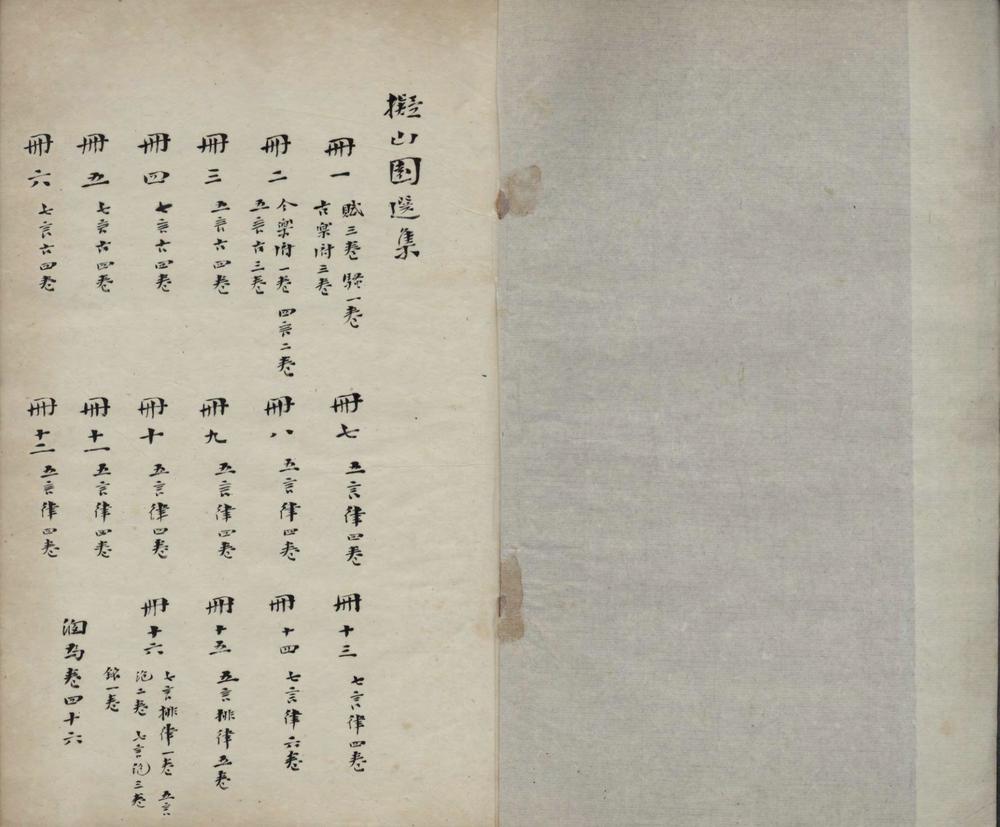 擬山園選集
冊一 賦三卷 騷一卷
古樂府三卷
冊二 今樂府一卷 四言二卷
五言古三卷
冊三 五言古四卷
冊四 七言古四卷
冊五 七言古四卷
冊六 七言古四卷
冊七 五言律四卷
冊八 五言律四卷
冊九 五言律四卷
冊十 五言律四卷
冊十一 五言律四卷
冊十二 五言律四卷
冊十三 七言律四卷
冊十四 七言律六卷
冊十五 五言排律五卷
冊十六 七言排律一卷 五言
絕二卷 七言絕三卷
銘一卷
為卷四十六